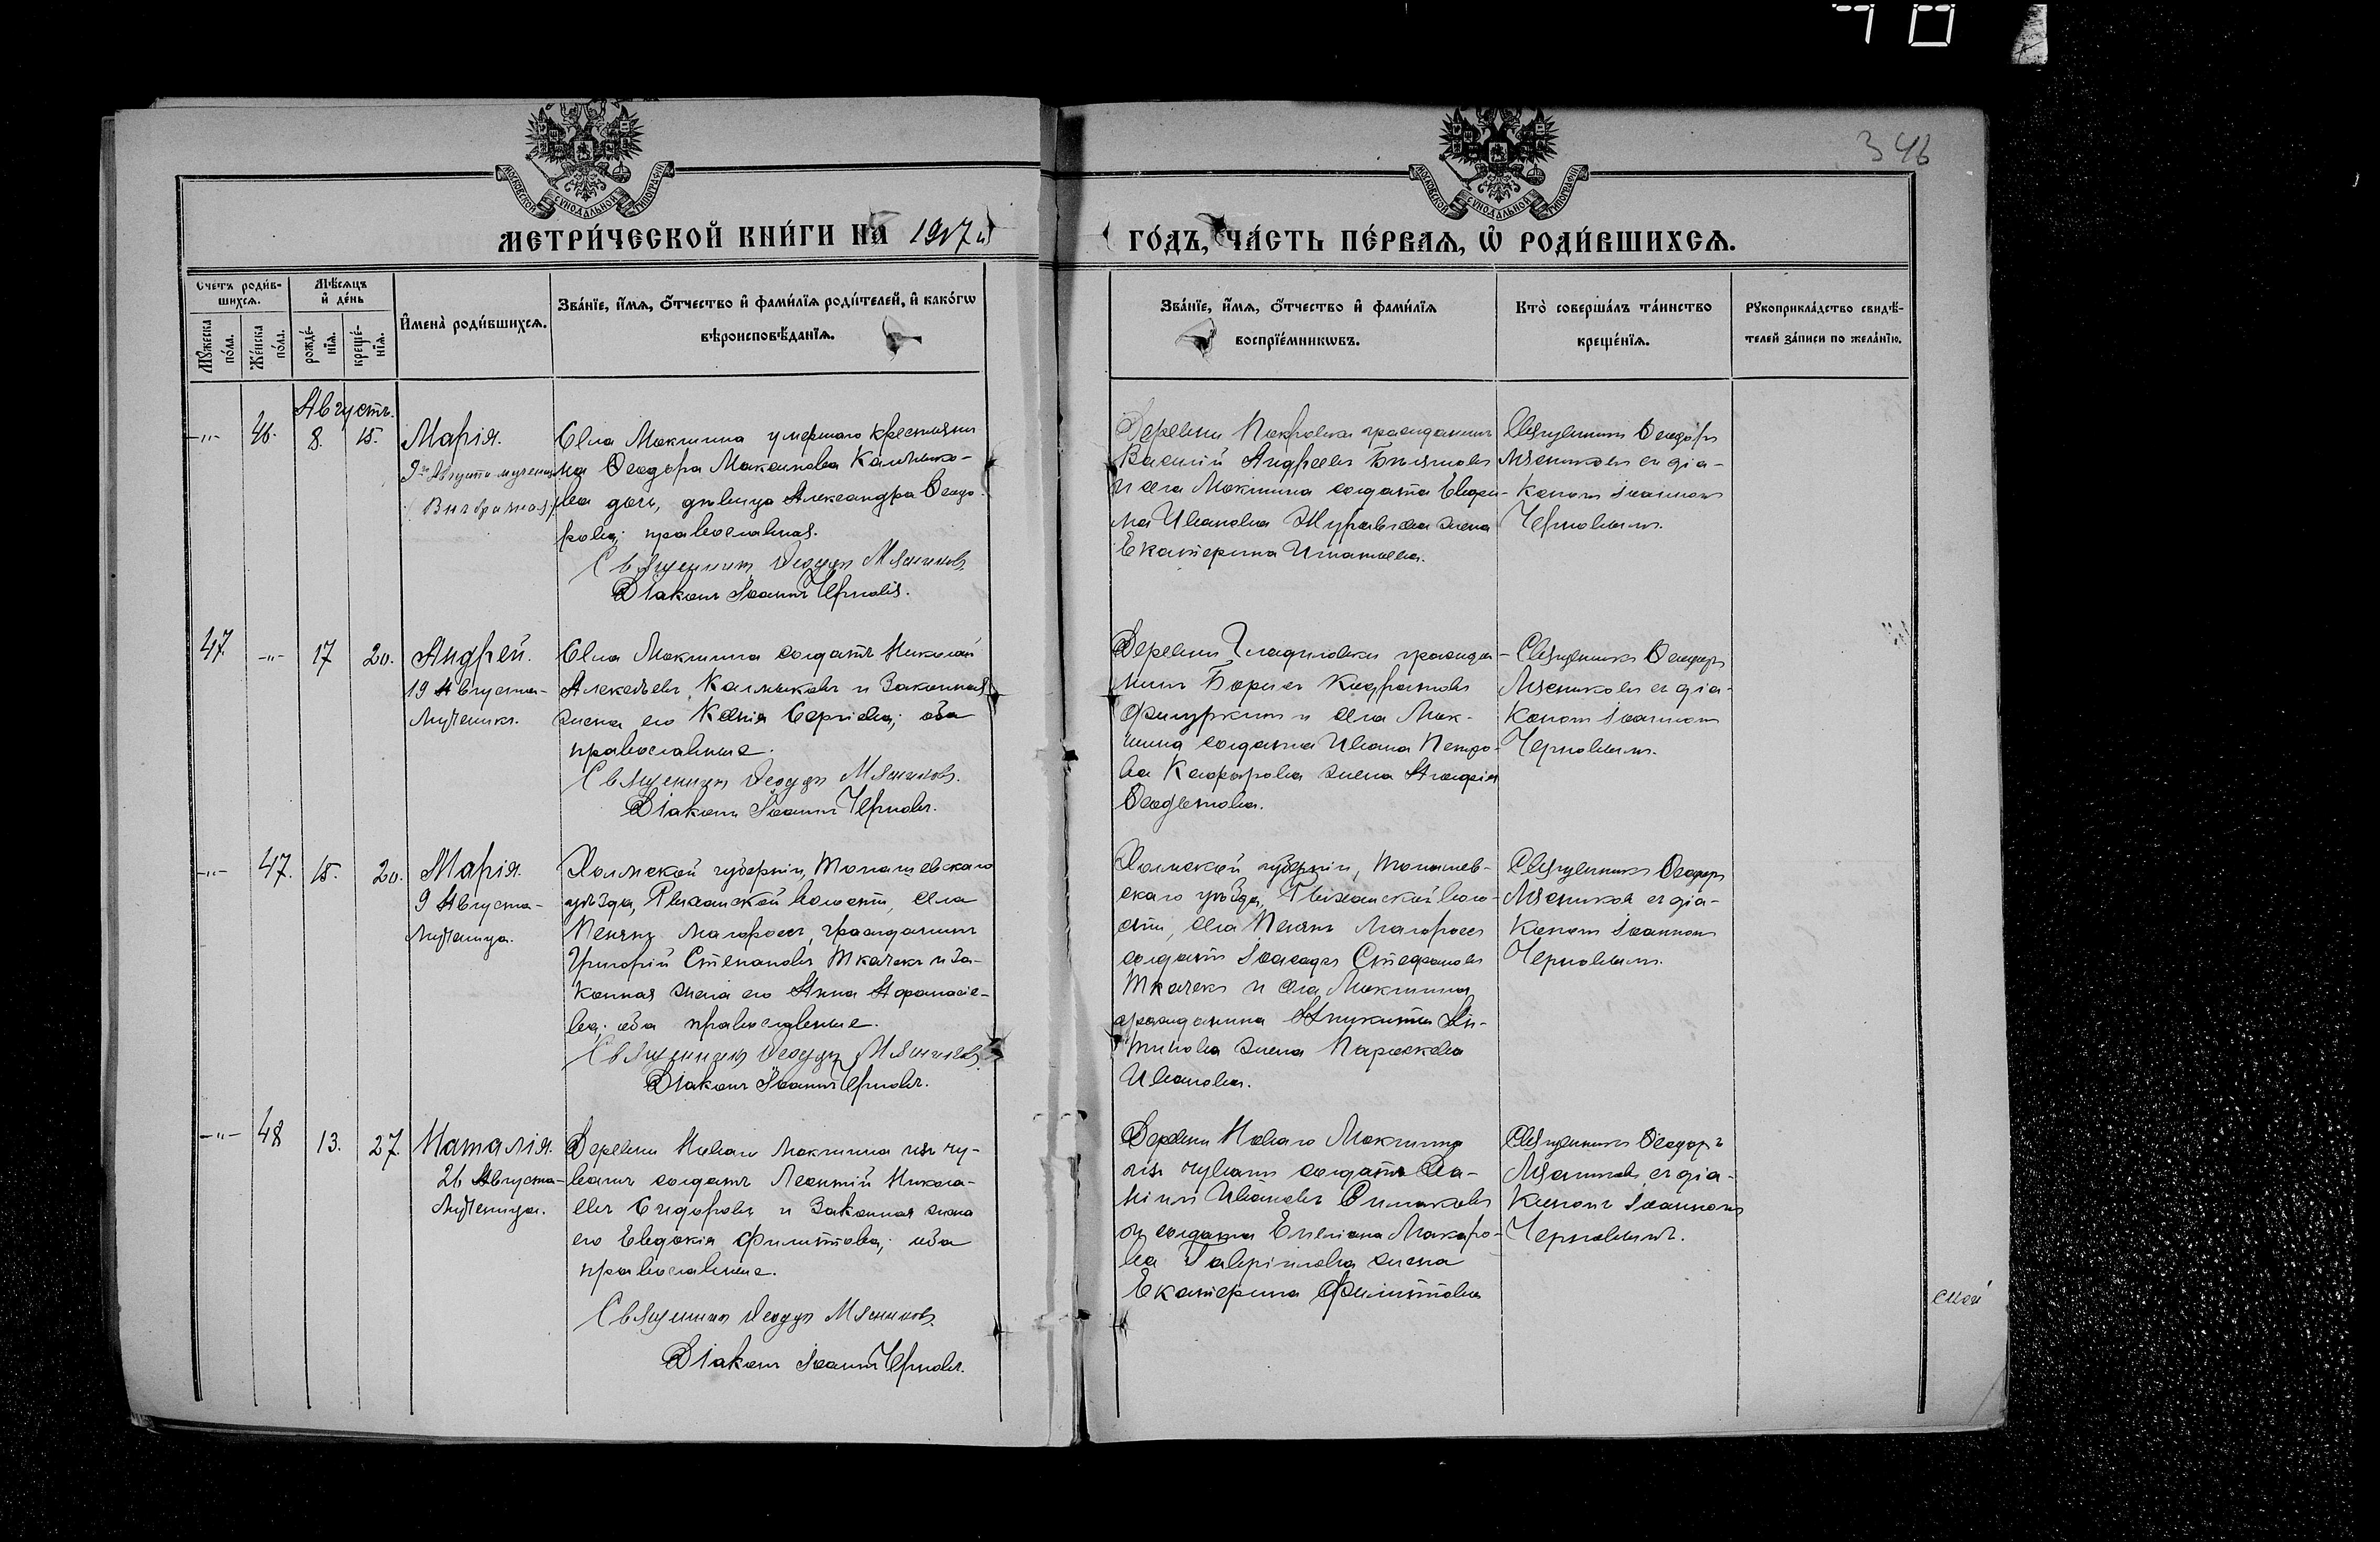 346
МОСКОВСКОЙ СѴНОДАЛЬНОЙ ТИПОГРАФІИ
МОСКОВСКОЙ СѴНОДАЛЬНОЙ ТИПОГРАФІИ
МЕТРИ́ЧЕСКОЙ КНИ́ГИ НА 1917й
ГО́ДЪ, ЧА́СТЬ ПЕ́РВАѦ, Ѽ РОДИ́ВШИХСѦ.
Счетъ роди́в-
шихсѧ.
Мѣ́сѧцъ
и҆ де́нь
Мꙋ́жеска
по́ла.
Же́нска
по́ла.
рожде́-
нїѧ.
креще́-
нїѧ.
И҆мена̀ роди́вшихсѧ.
Зва́нїе, и҆́мѧ, ѻ҆́тчество и҆ фами́лїѧ роди́телей, и҆ како́гѡ
вѣроисповѣ́данїѧ.
Зва́нїе, и҆́мѧ, ѻ҆́тчество и҆ фами́лїѧ
воспрїе́мникѡвъ.
Кто̀ соверша́лъ та́инство
креще́нїѧ.
Рꙋкоприкла́дство свидѣ́-
телей за́писи по жела́нїю.
Августъ.
-"- 46. 8. 15. Марія.
9го Августа мучениц
Села Мокшина умершаго крестьяни
на Ѳеодора Максимова Калмыко-
ва дочь, дѣвица Александра Ѳеодо
рова; православная.
Священникъ Ѳеодоръ Мясниковъ
Діаконъ Іоаннъ Черновъ.
Деревни Покровки гражданинъ
Василій Андреевъ
и села Мокшина солдата
Ивановна жена
Екатерина Игнатьева.
Священникъ Ѳеодоръ
Мясниковъ съ діа-
кономъ Іоанномъ
Черновымъ.
47. -"- 17 20. Андрей.
19 Августа
Мученикъ.
Села Мокшина солдатъ Николай
Алексѣевъ Калмыковъ и законная
жена его Ксенія Сергіева; оба
православные.
Священникъ Ѳеодоръ Мясниковъ.
Діаконъ Іоаннъ Черновъ.
Деревни Гладиловки гражда-
нинъ Борисъ
и села Мок-
шина солдата Ивана Петро-
ва жена Агафія
Ѳеодотова.
Священникъ Ѳеодоръ
Мясниковъ съ діа-
кономъ Іоанномъ
Черновымъ.
-"- 47. 15. 20. Марія.
9 Августа
Мученица.
Холмской губерніи, Томашевскаго
уѣзда, волости, села
гражданинъ
Григорій Степановъ Ткачекъ и за-
конная жена его Анна Афанасіе-
ва; оба православные.
Священникъ Ѳеодоръ Мясниковъ
Діаконъ Іоаннъ Черновъ.
Холмской губерніи, Томашев-
скаго уѣзда, воло-
сти, села
солдатъ Іоасафъ Стефановъ
Ткачекъ и села Мокшина
гражданина Аникиты Ан-
типова жена Параскева
Иванова.
Священникъ Ѳеодоръ
Мясниковъ съ діа-
кономъ Іоанномъ
Черновымъ.
-"- 48 13. 27. Наталія.
26 Августа
Мученица.
Деревни Новаго Мокшина изъ чу-
вашъ солдатъ Леонтій Никола-
евъ Сидоровъ и законная жена
его Евдокія Филиппова; оба
православные.
Священникъ Ѳеодоръ Мясниковъ.
Діаконъ Іоаннъ Черновъ.
Деревни Новаго Мокшина
изъ чувашъ солдатъ Да-
ніилъ Ивановъ
и солдата Емеліана Макаро-
ва Гавріилова жена
Екатерина Филиппова
Священникъ Ѳеодоръ
Мясниковъ съ діа-
кономъ Іоанномъ
Черновымъ.